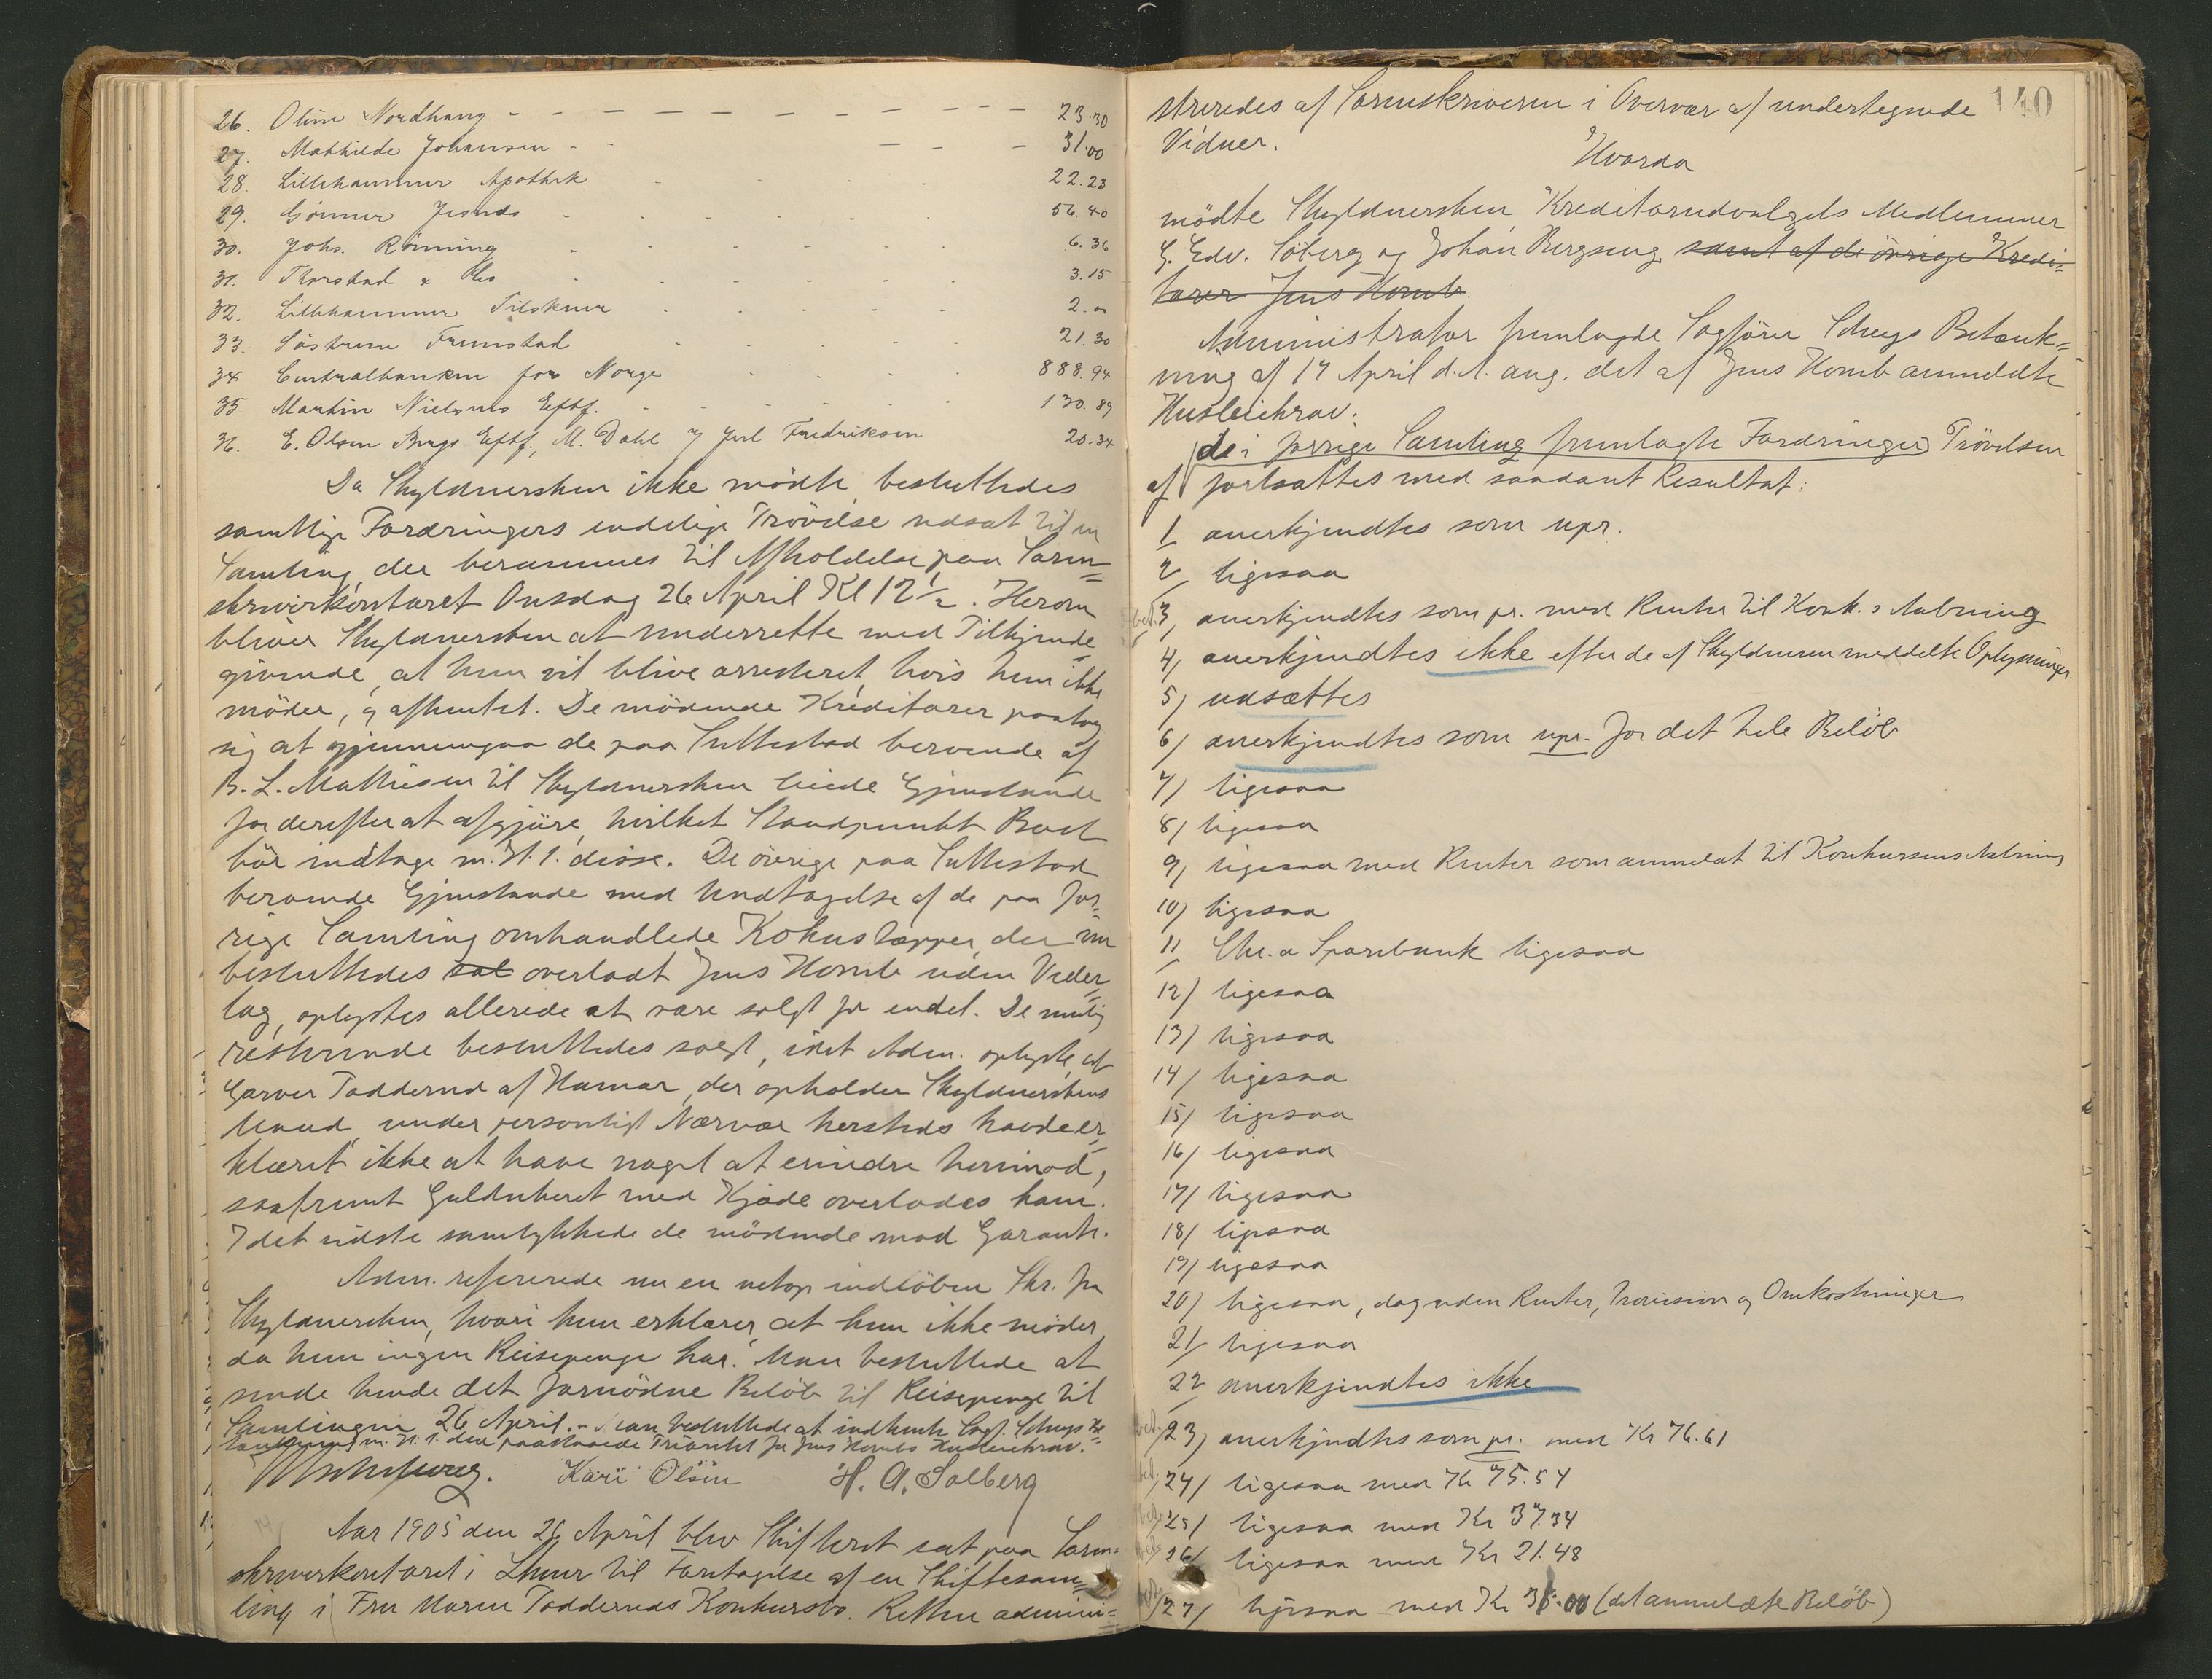 26. Oline Nordhaug - - - - - - - - - - - 23.30
27. Mathilde Johansen - - - - - 31.00
28. Lillehammer Apothek 22.23
29. Gunnar 56.40
30. Johs. Rönning 6.36
31. Thorstad & 3.15
32. Lillehammer Tilskuer 2.00
33. Söstrene Frimstad 21.30
34 Centralbanken for Norge 888.94
35. Martin Nielsens Eftf. 130.89
36. E. Olsen Eftf., M. Dahl og Fredriksen 20.34
Da Skyldnersken ikke mödte, besluttedes
samtlige Fordringers endelige Prövelse udsat til en
Samling, der berammes til Afholdelse paa Soren-
skriverkontoret Onsdag 26 April Kl 12½. Herom
bliver Skyldnersken at underrette med Tilkjende
givende, at hun vil blive arresteret, hvis hun ikke
möder, og afhentet. De mödende Kreditorer paatog
sig at gjennemgaa de paa Suttestad beroende af
B. L. Mathiesen til Skyldnersken leiede Gjenstande
for derefter at afgjöre, hvilket Standpunkt Boet
bör indtage m. H. t. disse. De övrige paa Suttestad
beroende Gjenstande med Undtagelse af de paa for-
rige Samling omhandlede Kokustæpper, der nu
besluttedes sol overladt Jens Homb uden Veder-
lag, oplystes allerede at være solgt for endel. De mulig
resterende besluttedes solgt, idet Adm. oplyste, at
Garver Todderud af Hamar, der opholder Skyldnerskens
Mand, under personligt Nærvær hersteds havde er-
klæret ikke at have noget at erindre herimod,
saafremt Gulduhret med Kjæde overlodes ham.
I det sidste samtykkede de mödende mod Garanti.
Adm. refererede nu en netop indlöben Skr. fra
Skyldnersken, hvori hun erklærer, at hun ikke möder,
da hun ingen Reisepenge har. Man besluttede at
sende hende det fornödne Belöb til Reisepenge til
Samlingen 26 April. - Man besluttede at indhente Sagf. Scheys Be-
tænkning m. H. t. den paastaaede Prioritet for Jens Hombs Husleiekrav.
Kari Olsen H. A. Solberg
Aar 1905 den 26 April blev Skifteret sat paa Soren-
skriverkontoret i Lhmr til Foretagelse af en Skiftesam-
ling i Fru Maren Todderuds Konkursbo. Retten admini-
140
streredes af Sorenskriveren i Overvær af undertegnede
Vidner.
Hvorda
mödte Skyldnersken, Kreditorudvalgets Medlemmer
G. Edv. Söberg og Johan Bergseng, samt af de övrige Kredi-
torer Jens Homb.
Administrator fremlagde Sagförer Scheys Betænk-
ning af 17 April d. A. ang. det af Jens Homb anmeldte
Husleiekrav.
de i forrige Samling fremlagte Fordringer Prövelsen
af fortsattes med saadant Resultat:
1 anerkjendtes som upr.
2 ligesaa
bet. 3, anerkjendtes som pr. med Renter til Konk.s Aabning
4, anerkjendtes ikke efter de af Skyldneren meddelte Oplysninger.
5) udsættes
6) anerkjendtes som upr. for det hele Belöb
7) ligesaa
8) ligesaa
9) ligesaa med Renter som anmeldt til Konkursens Aabning
10) ligesaa
11 Chr.a Sparebank ligesaa
12) ligesaa
13) ligesaa
14) ligesaa
15) ligesaa
16) ligesaa
17) ligesaa
18) ligesaa
19) ligesaa
20) ligesaa, dog uden Renter, Provision og Omkostninger
21 ligesaa
22 anerkjendtes ikke
bet. 23) anerkjendtes som pr. med Kr 76.61
bet. 24) ligesaa med Kr 75.54
bet. 25) ligesaa med Kr 37.34
bet. 26) ligesaa med Kr 21.48
bet. 27) ligesaa med Kr 31.00 (det anmeldte Belöb)